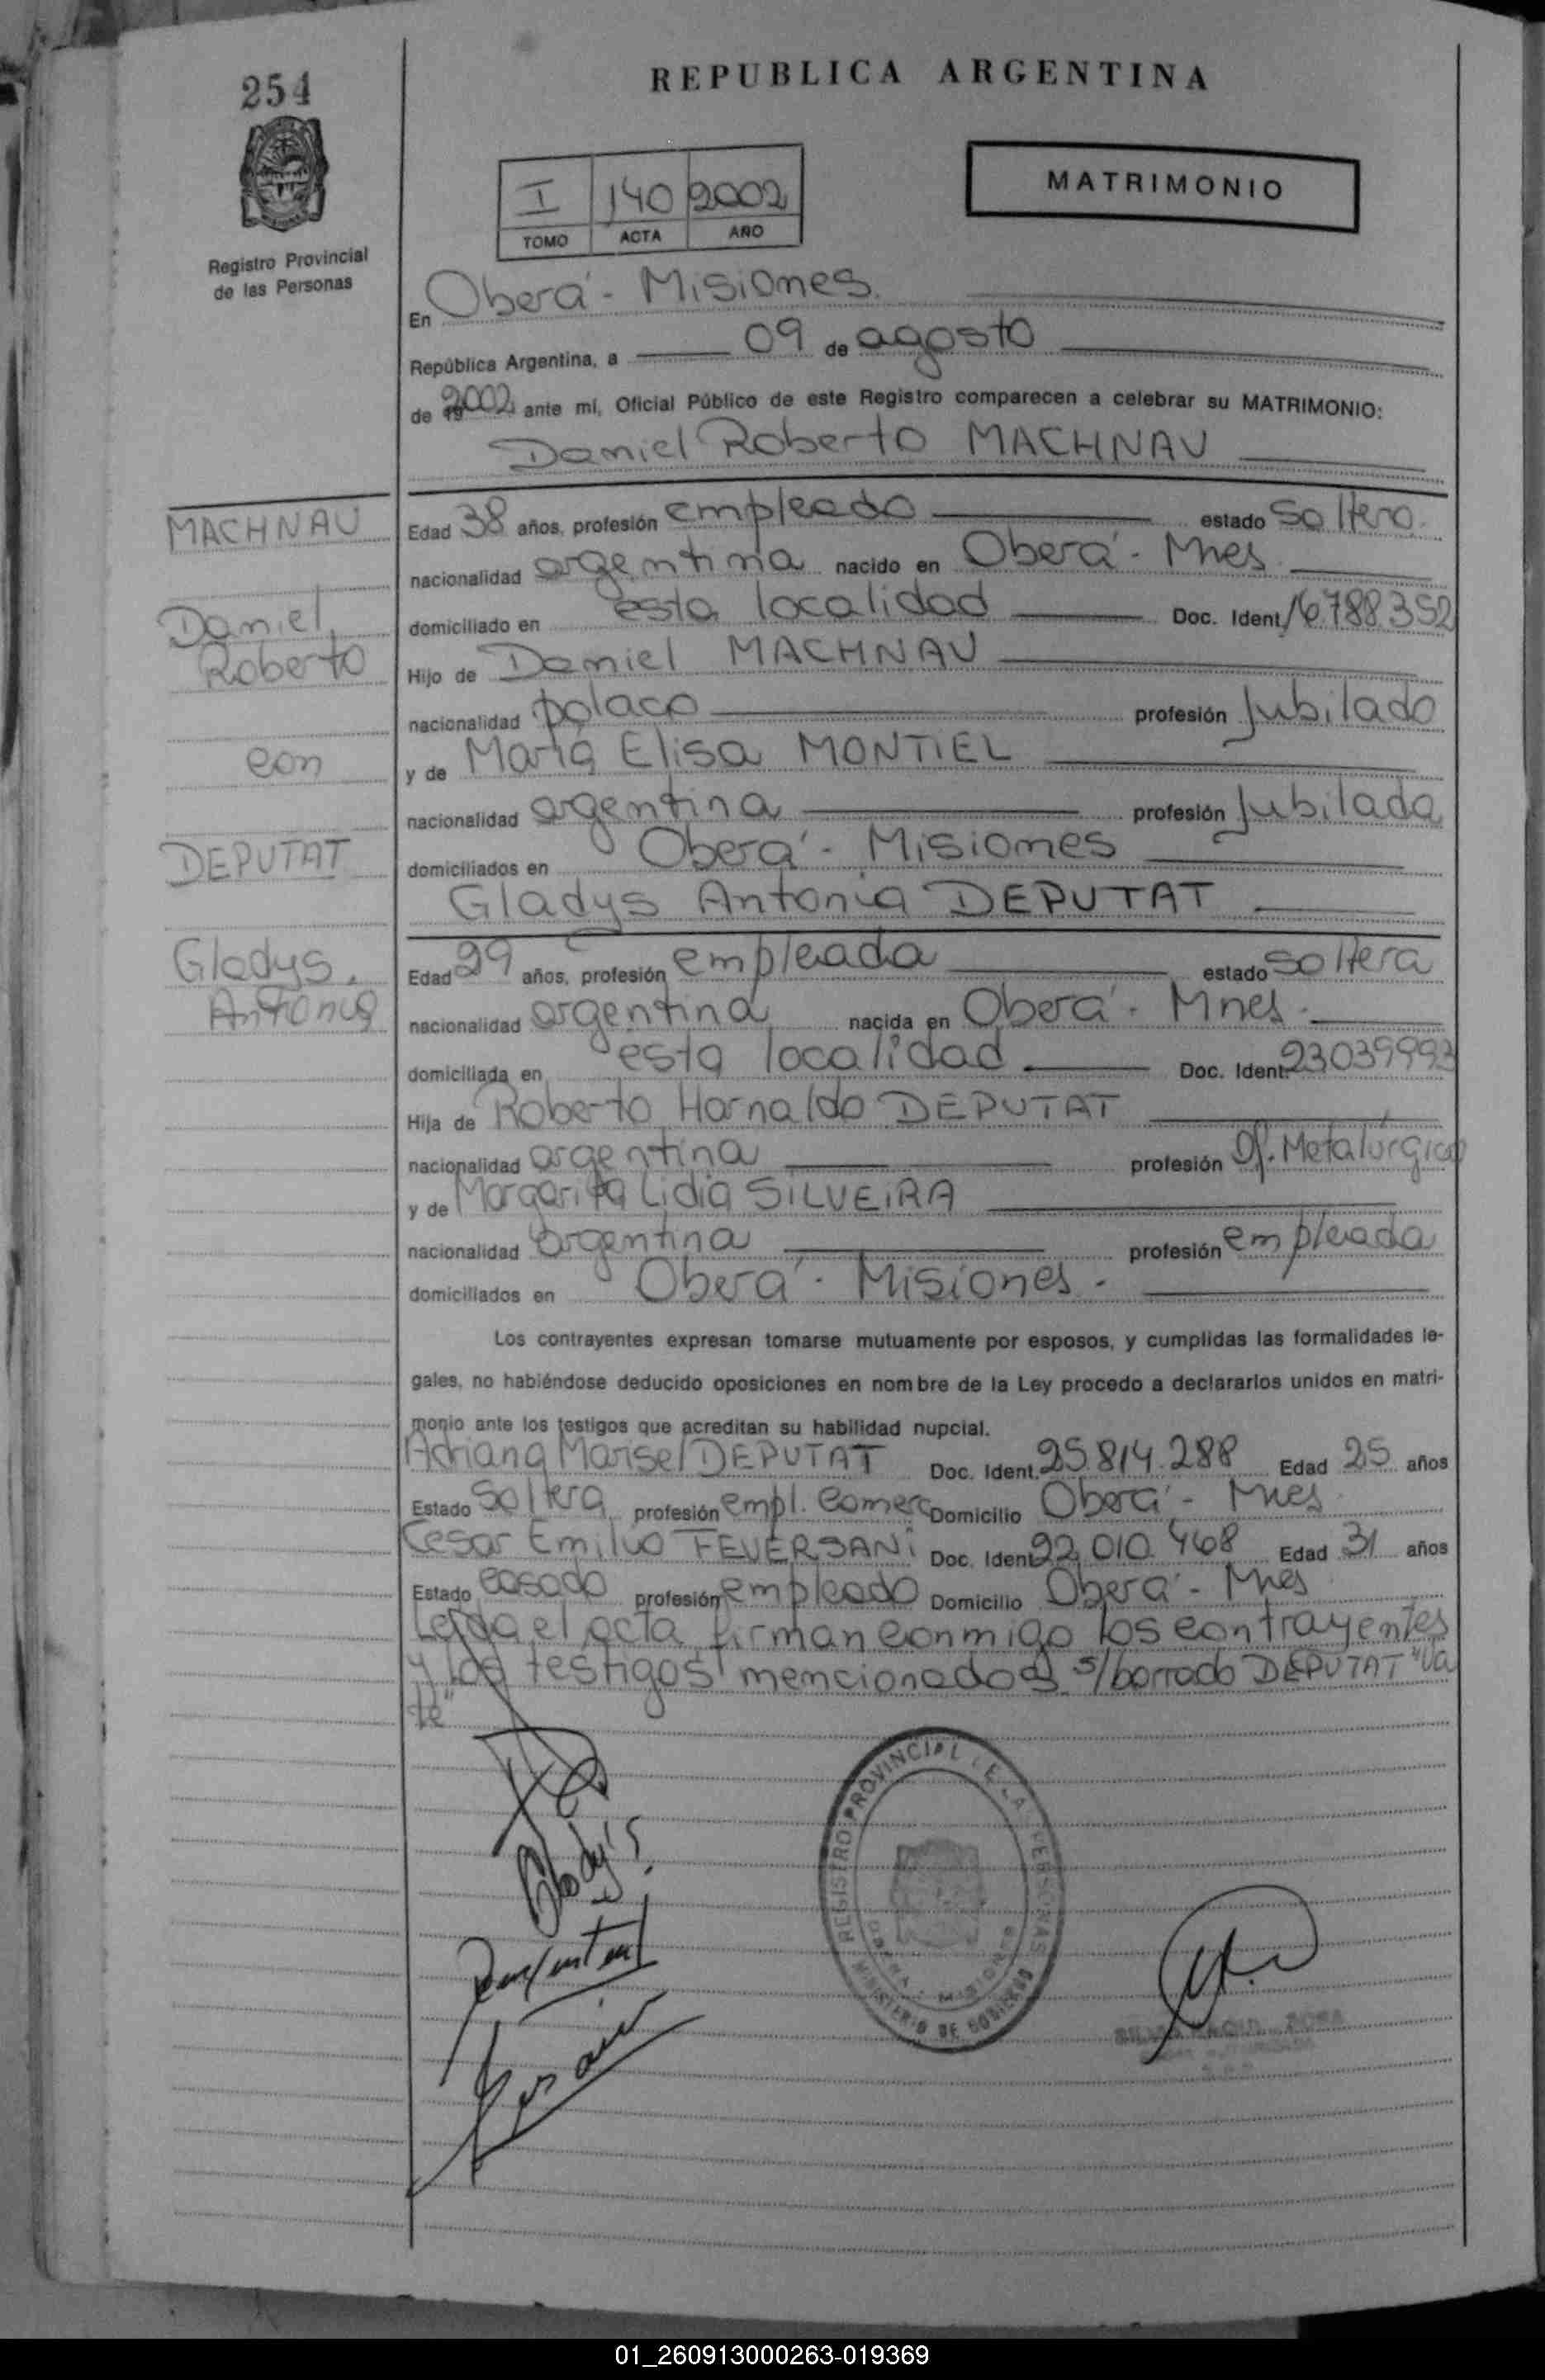 254
REPUBLICA ARGENTINA
MATRIMONIO
I 140 2002
TOMO ACTA AÑO
Registro Provincial
de las Personas
En Oberá - Misiones.
República Argentina, a 09 de agosto
de 2002 ante mí, Oficial Público de este Registro comparecen a celebrar su MATRIMONIO:
Daniel Roberto MACHNAU
MACHNAU
Edad 38 años, profesión empleado estado soltero.
nacionalidad argentina nacido en Oberá - Mnes.
Daniel
domiciliado en esta localidad Doc. Ident. 16.788.352
Roberto
Hijo de Daniel MACHNAU
nacionalidad polaco profesión Jubilado
con
y de María Elisa MONTIEL
nacionalidad argentina profesión Jubilada
DEPUTAT
domiciliados en Oberá - Misiones
Gladys Antonia DEPUTAT
Gladys
Edad 29 años, profesión empleada estado soltera
Antonia
nacionalidad argentina nacida en Oberá - Mnes.
domiciliada en esta localidad Doc. Ident. 23039993
Hija de Roberto Harnaldo DEPUTAT
nacionalidad argentina profesión Of. Metalúrgico
y de Margarita Lidia SILVEIRA
nacionalidad argentina profesión empleada
domiciliados en Oberá - Misiones -
Los contrayentes expresan tomarse mutuamente por esposos, y cumplidas las formalidades le-
gales, no habiéndose deducido oposiciones en nombre de la Ley procedo a declararlos unidos en matri-
monio ante los testigos que acreditan su habilidad nupcial.
Adriana Marisel DEPUTAT Doc. Ident. 25.814.288 Edad 25 años
Estado Soltera profesión empl. comerc Domicilio Oberá - Mnes
Cesar Emilio FEVERSANI Doc. Ident. 22.010.468 Edad 31 años
Estado casado profesión empleado Domicilio Oberá - Mnes
Leida el acta firman conmigo los contrayentes
y los testigos mencionados s/borrado DEPUTAT "Va
le"
Gladys
REGISTRO PROVINCIAL DE LAS PERSONAS
OBERA - MISIONES
MINISTERIO DE GOBIERNO
01_260913000263-019369